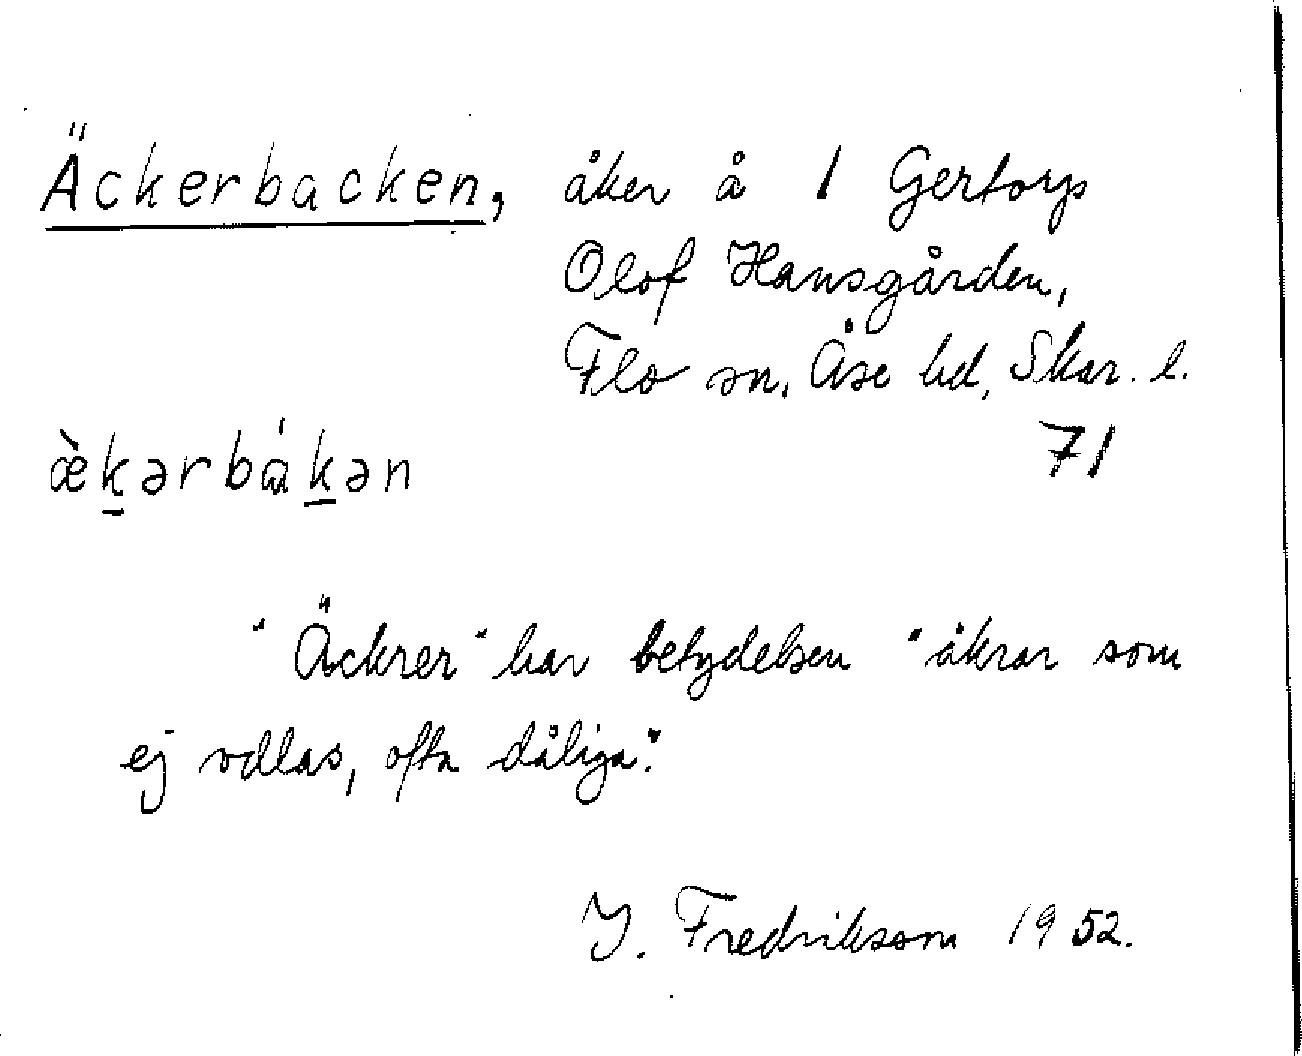 Äckerbacken, åker å 1 Gertorp
Olof Hansgården,
Flo sn, Åse hd, Skar. l.
71
æ̀kərbɑ́kən
"Äckrer" har betydelsen "åkrar som
ej odlas, ofta dåliga."
Y. Fredriksson 1952.